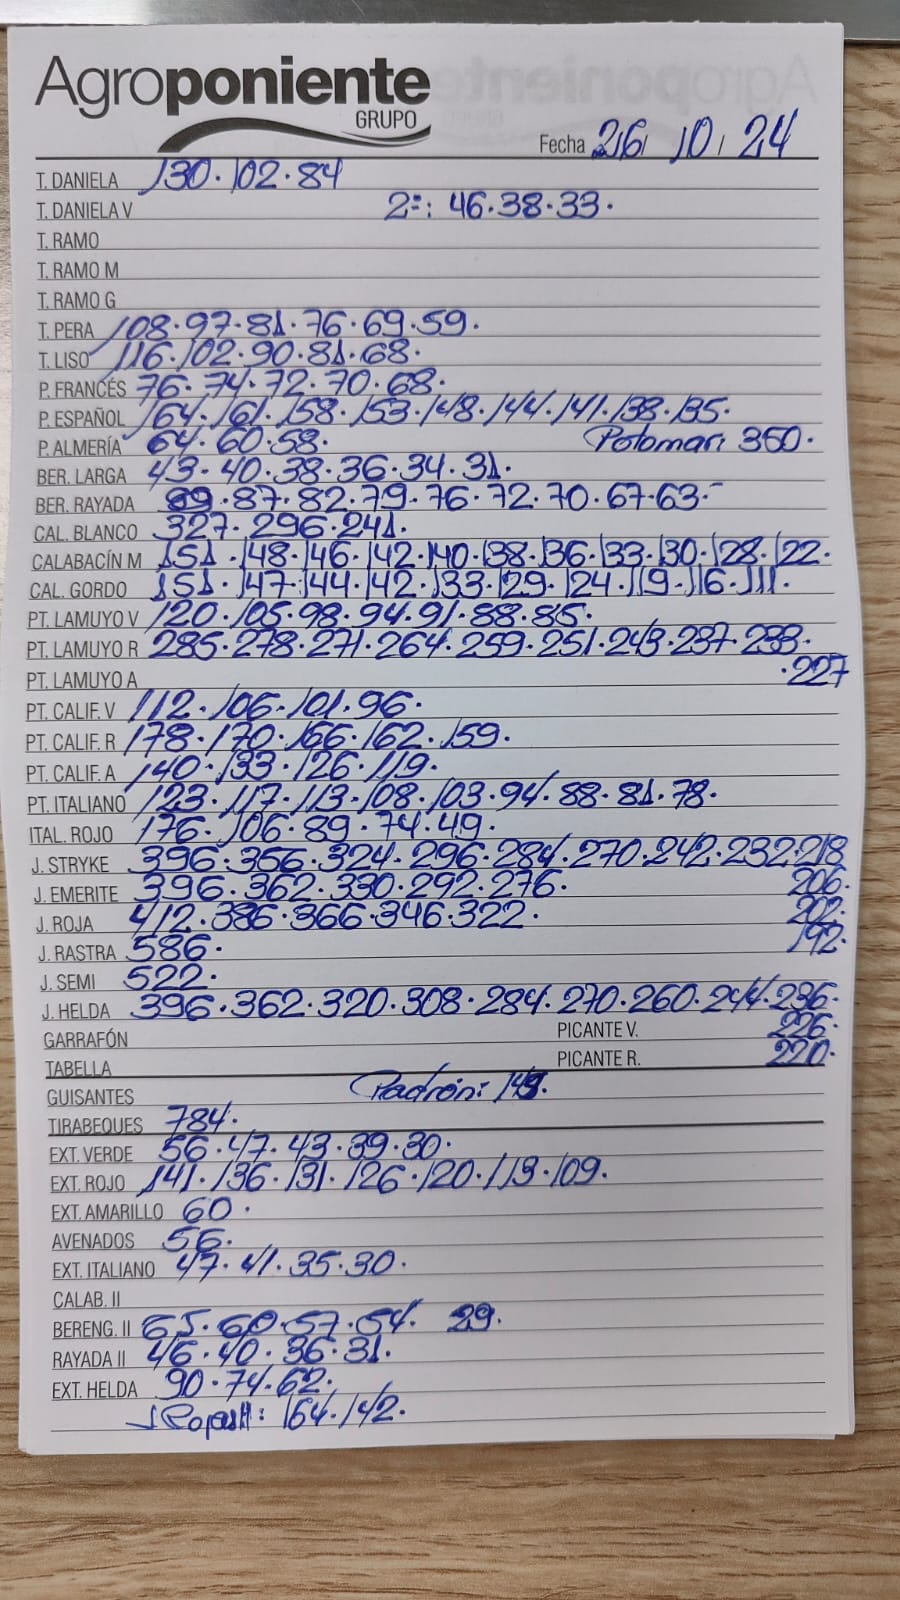 Agroponiente
GRUPO
Fecha 26/ 10/ 24
T. DANIELA 130·102·84
T. DANIELA V 2ª: 46·38·33·
T. RAMO
T. RAMO M
T. RAMO G
T. PERA 108·97·81·76·69·59·
T. LISO 116·102·90·81·68·
P. FRANCÉS 76·74·72·70·68·
P. ESPAÑOL 164·161·158·153·148·144·141·138·135·
P. ALMERÍA 64·60·58· Polomar: 350·
BER. LARGA 43·40·38·36·34·31·
BER. RAYADA 89·87·82·79·76·72·70·67·63·
CAL. BLANCO 327·296·241·
CALABACÍN M 151·148·146·142·140·138·136·133·130·128·122·
CAL. GORDO 151·147·144·142·133·129·124·119·116·111·
PT. LAMUYO V 120·105·98·94·91·88·85·
PT. LAMUYO R 285·278·271·264·259·251·243·237·233·
PT. LAMUYO A ·227
PT. CALIF. V 112·106·101·96·
PT. CALIF. R 178·170·166·162·159·
PT. CALIF. A 140·133·126·119·
PT. ITALIANO 123·117·113·108·103·94·88·81·78·
ITAL. ROJO 176·106·89·74·49·
J. STRYKE 396·356·324·296·284·270·242·232·218
J. EMERITE 396·362·330·292·276· 206·
J. ROJA 412·386·366·346·322· 202·
J. RASTRA 586· 192·
J. SEMI 522·
J. HELDA 396·362·320·308·284·270·260·244·236·
GARRAFÓN PICANTE V. 226·
TABELLA PICANTE R. 220·
GUISANTES Padrón: 149·
TIRABEQUES 784·
EXT. VERDE 56·47·43·39·30·
EXT. ROJO 141·136·131·126·120·113·109·
EXT. AMARILLO 60·
AVENADOS 56·
EXT. ITALIANO 47·41·35·30·
CALAB. II
BERENG. II 65·60·57·54· 29·
RAYADA II 46·40·36·31·
EXT. HELDA 90·74·62·
164·142·